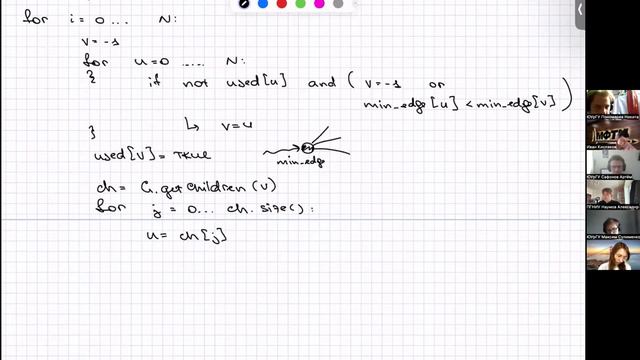 for i = 0 ... N:
v = -1
for u = 0 ..... N:
{ if not used[u] and ( v = -1 or
min_edge [u] < min_edge [v] )
↳ v = u
}
used[v] = TRUE
min_edge
ch = G.getChildren (v)
for j = 0 ... ch. size() :
u = ch [j]
ЮУрГУ Пономарев Никита
Иван Кисляков
ЮУрГУ Сафонов Артём
ПГНИУ Наумов Александр
ЮУрГУ Максим Сулименко